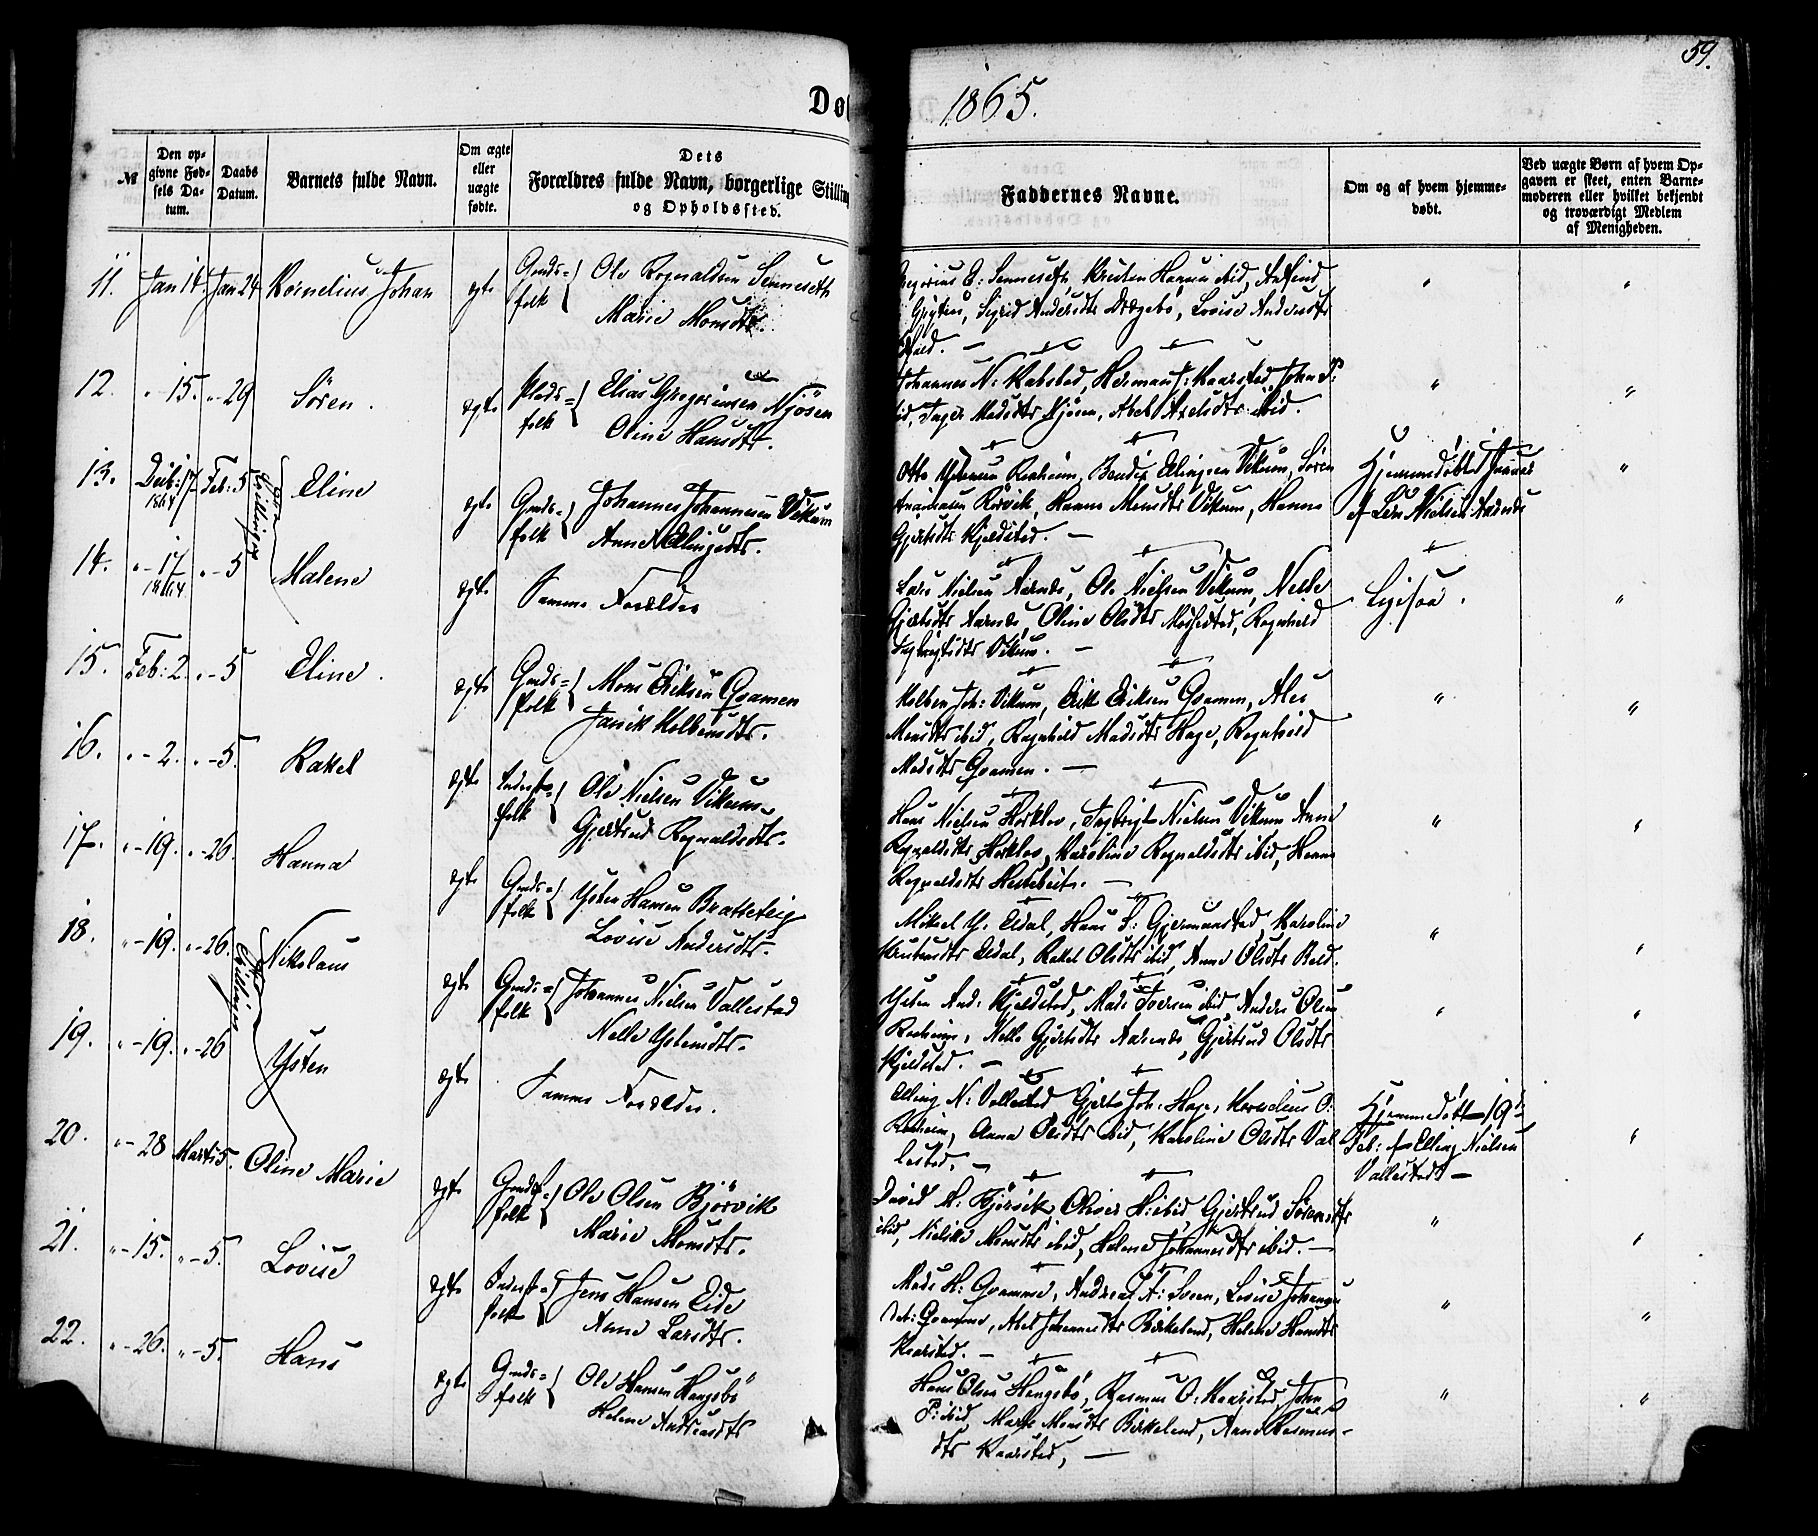 Dø
1865.
59.
№
Den op-
givne Fød-
sels Da-
tum.
Daabs
Datum.
Barnets fulde Navn.
Om ægte
eller
uægte
fødte.
Dets
Forældres fulde Navn, borgerlige Stilling
og Opholdssted.
Faddernes Navne.
Om og af hvem hjemme-
døbt.
Ved uægte Børn af hvem Op-
gaven er skeet, enten Barne-
moderen eller hvilket bekjendt
og troværdigt Medlem
af Menigheden.
11. Jan 14 Jan 24 Kornelius Johan ægte Gmds= folk { Ole Rognaldsen Senneseth
Marie Monsdtr.
E: Senneseth, Kristen Hansen ibid,
Sigrid Andersdtr Drægebø, Lovise Andersdtr
ibid. —
12. " - 15. " - 29 Søren. ægte Plads= folk { Elias Gregoriusen Njøsen
Oline Hansdtr.
Johannes N: Kalstad, Herman J: Kaarstad, John P:
ibid, Inger Madsdtr Njøsen, Abel Axelsdtr ibid.
13. Decb: 17 1864 Feb: 5 Eline ægte Gmds= folk { Johannes Johannesen Vikum
Anne Ellingsdtr.
Tvillinger
Otto Ystensen Reeheim, Bendix Ellingsen Vikum, Søren
Rørvik, Hanna Monsdtr Vikum, Hanna
Gjertsdtr Kjelstad. —
Hjemmedøbted
af Lars Nielsen Aarnes
14. " - 17 1864 " - 5 Malene ægte Samme Forældre
Lars Nielsen Aarnes, Ole Nielsen Vikum, Nelle
Gjertsdtr Aarnes, Oline Olsdtr, Rognhild
Ingbrigtsdtr Vikum. —
Ligesaa.
15. Feb: 2. " - 5 Eline. ægte Gmds= folk { Mons Eriksen Gvamen
Jansik Kolbensdtr.
Kolben Joh: Vikum, Erik Eriksen Gvamen, Ales
Monsdtr ibid, Rognhild Madsdtr Hage, Rognhild
Madsdtr Gvamen. —
16. " - 2. " - 5. Rakel ægte Inderst= folk { Ole Nielsen Vikum
Gjertrud Rognaldsdtr.
Hans Nielsen Horklev, Ingbrigt Nielsen Vikum Anne
Rognaldsdtr Horklev, Karoline Rognaldsdtr ibid, Hanna
Rognaldsdtr Hestebeit. —
17. " - 19. " - 26. Hanna ægte Gmds= folk { Ysten Hansen Bratteteig
Lovise Andersdtr.
Mikal Y. Eldal, Hans P: Gjermundstad, Karoline
Kristensdtr Eldal, Rakel Olsdtr ibid, Anne Olsdtr Bell.
18. " - 19. " - 26. Nikolaus ægte Gmds= folk { Johannes Nielsen Vallestad
Nelle Ystensdtr.
Tvillinger
Ysten And: Kjelstad, Mads Iversen ibid, Anders Olsen
Reeheim, Nelle Gjertsdtr Aarnes, Gjertrud Olsdtr
Kjelstad. —
19. " - 19. " - 26 Ysten ægte Samme Forældre.
Elling N: Vallestad Gjert Joh: Hage, Kornelius O:
Reeheim, Anna Olsdtr ibid, Karoline Olsdtr Val-
lestad, —
Hjemmedøbt 19de
Feb: af Elling Nielsen
Vallestad —
20. " - 28 Marts 5. Oline Marie ægte Gmds= folk { Ole Olsen Bjørvik
Marie Monsdtr.
David A: Bjørvik, Oliver H: ibid Gjertrud Sørensdtr
ibid, Nielsine Monsdtr ibid, Helene Johannesdtr ibid. —
21. " - 15. " - 5. Lovise ægte Inderst= folk { Jens Hansen Eide
Anne Larsdtr.
Mads H: Gvamme, Andreas A: Sveen, Lovise Johannes
Dtr: Gvamme, Abel Johannesdtr Birkeland, Helene Hansdtr
Kaarstad. —
22. " - 26. " - 5. Hans ægte Gmds= folk { Ole Hansen Haugsbø
Helene Andreasdtr
Hans Olsen Haugsbø, Rasmus O: Kaarstad, John
P: ibid, Marte Monsdtr Birkeland, Anne Rasmus-
dtr Kaarstad, —